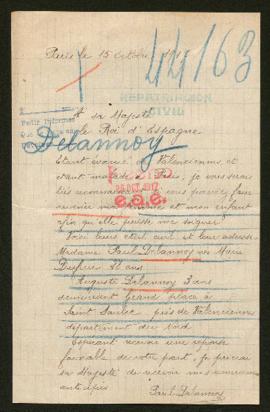 Paris le 15 octobre 1917
44163
REPATRIACION
CIVIL
A sa Majesté
le Roi d'Espagne
Delannoy
Etant évacué de Valenciennes et
étant malade à Paris, je vous serais
bien reconnaissant si vous pouviez faire
revenir ma femme et mon enfant
afin qu'elle puisse me soigner
Voici leurs état civil et leur adresse
Madame Paul Delannoy née Marie
26 ans
Auguste Delannoy 3 ans
demeurant Grand place à
Saint Saulve près de Valenciennes
département du Nord
Espérant recevoir une réponse
favorable de votre part, je prie
sa Majesté de recevoir mes remerciements
anticipés
Paul Delannoy